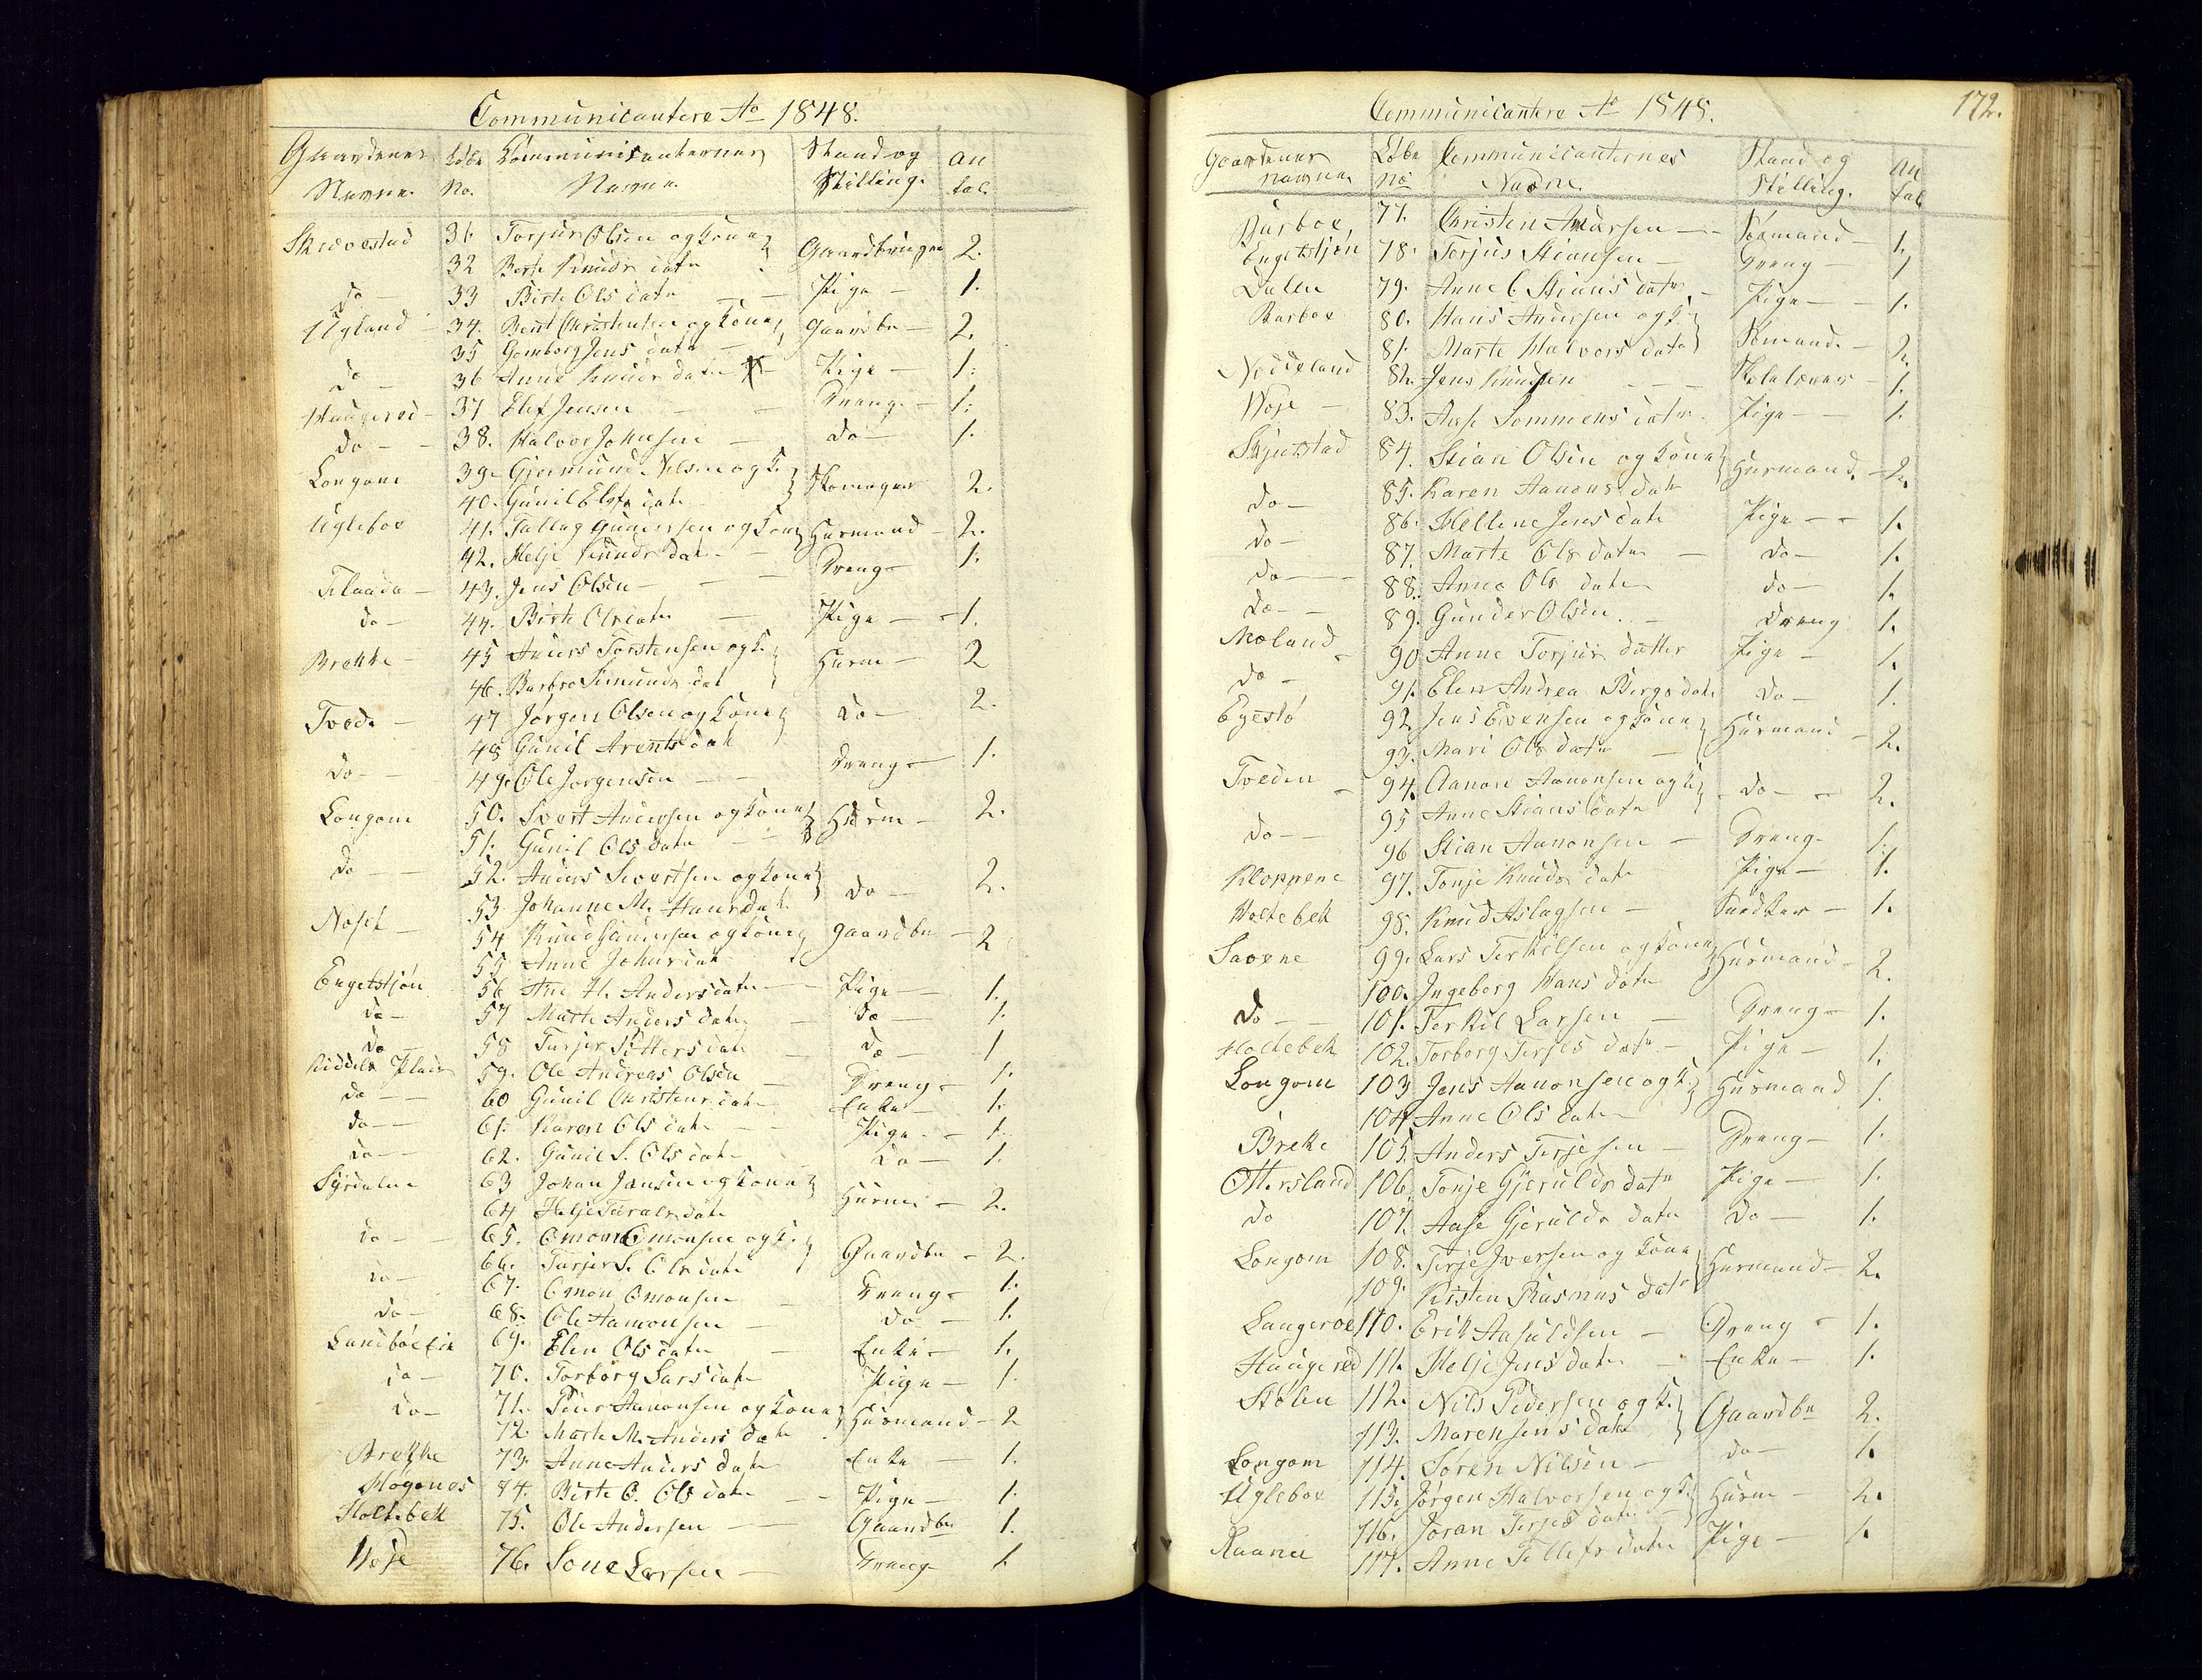 Communicantere Ao 1848.
Gaardenes Navne. Løbe No. Communicanternes Navne. Stand og Stilling. an tal.
31. Torjus Olsen og Kone Gaardbruger 2.
32 Berte Knuds datr
do 33 Birte Ols datr Pige 1.
Ugland 34. Bent Christensen og Kone Gaardbr 2.
35 Gomborg Jens datr
do 36 Anne Knuds datr Pige 1.
Haugered 37 Elef Jensen Dreng 1.
do 38. Halvor Johnsen do 1.
Longom 39. Gjermund Nilsen og K. Skomager 2.
40. Gunil Elefs datr
Ugleboe 41. Tallag Gundersen og Kone Husmand 2.
42. Helje Knuds datr
Flaada 43. Jens Olsen Dreng 1.
do 44. Birte Ols datr Pige 1.
Brekke 45 Anders Torstensen og K. Husm 2
46. Barbro Simunds dat
Tvede 47 Jørgen Olsen og Kone do 2.
48 Gunil Arents dat
do 49. Ole Jørgensen Dreng 1.
Longom 50. Sivert Andersen og Kone Husm 2.
51. Gunil Ols datr
do 52. Anders Sivertsen og Kone do 2.
53 Johanne M. Hans dat
54 Knud Gundersen og Kone Gaardbr 2
55 Anne Johns dat
Engetstjøn 56 Ane H. Anders datr Pige 1.
do 57 Marte Anders datr do 1.
do 58 Turjer Sitters dat do 1
Plads 59. Ole Andreas Olsen Dreng 1.
do 60 Gunil Christens datr Enke 1.
do 61. Karen Ols datr Pige 1.
do 62. Gunil S. Ols datr do 1.
Syrdalen 63 Johan Jensen og Kone Husm 2.
64 Helje Tarals datr
do 65. Omon Omonsen og K. Gaardbr 2.
66. Turjer S. Ols datr
do 67. Omon Omonsen Dreng 1.
do 68. Ole Aamonsen do 1.
69. Elen Ols datr Enke 1.
do 70. Torborg Lars datr Pige 1.
do 71. Peder Aanonsen og Kone Husmand 2
72. Marte M. Anders datr
Brekke 73. Anne Anders datr Enke 1.
Høgenes 74. Birte O. Ols datr Pige 1.
Holtebek 75. Ole Andersen Gaardbr 1.
76. Sone Larsen Dreng 1.
Communicantere Ao 1848. 172.
Gaardenes navne. Løbe No Communicanternes Navne. Stand og Stilling. an tal
Burboe 77. Christen Andersen Sømand 1.
Engetstjøn 78. Torjus Stiansen Dreng 1
Dalen 79. Anne C. Stians datr Pige 1.
Barboe 80. Hans Andersen og K. Sømand 2.
81. Marte Halvors datr
Nøddeland 82. Jens Knudsen Skolelærer 1.
83. Aase Sommens datr Pige 1.
84. Stian Olsen og Kone Husmand 2.
85. Karen Aanons datr
do 86. Helline Jens datr Pige 1.
do 87. Marte Ols datr do 1.
do 88. Anne Ols datr do 1.
do 89. Gunder Olsen Dreng 1.
Moland 90 Anne Torjus datter Pige 1.
do 91. Elen Andrea Bergs datr do 1.
92 Jens Evensen og Kone Husmand 2.
93. Mari Ols datr
Tveden 94. Aanon Aanonsen og K. do 2.
95 Anne Stians datr
do 96 Stian Aanonsen Dreng 1.
Kloppene 97. Tonje Knuds datr Pige 1.
Holtebek 98. Knud Aslagsen Snedker 1.
Savene 99. Lars Terkilsen og Kone Husmand 2.
100. Ingeborg Hans datr
do 101. Terkil Larsen Dreng 1.
Holtebek 102. Torborg Terjes datr Pige 1.
Longom 103 Jens Aanonsen og K. Husmand 1.
104 Anne Ols datr
Breke 105. Anders Terjesen Dreng 1.
Ottersland 106. Tonje Gjerulds datr Pige 1.
do 107. Aase Gjerulds datr do 1.
Longom 108. Terje Iversen og Kone Husmand 2.
109. Kisten Rasmus datr
Langeroe 110. Erik Aasuldsen Dreng 1.
Haugered 111. Helje Jens datr Enke 1.
Stølen 112. Nils Pedersen og K. Gaardbr 2.
113. Maren Jens datr
Longom 114. Søren Nilsen do 1.
Ugleboe 115. Jørgen Halvorsen og K. Husm 2.
116. Joran Terjes datr
117. Anne Tellefs datr Pige 1.